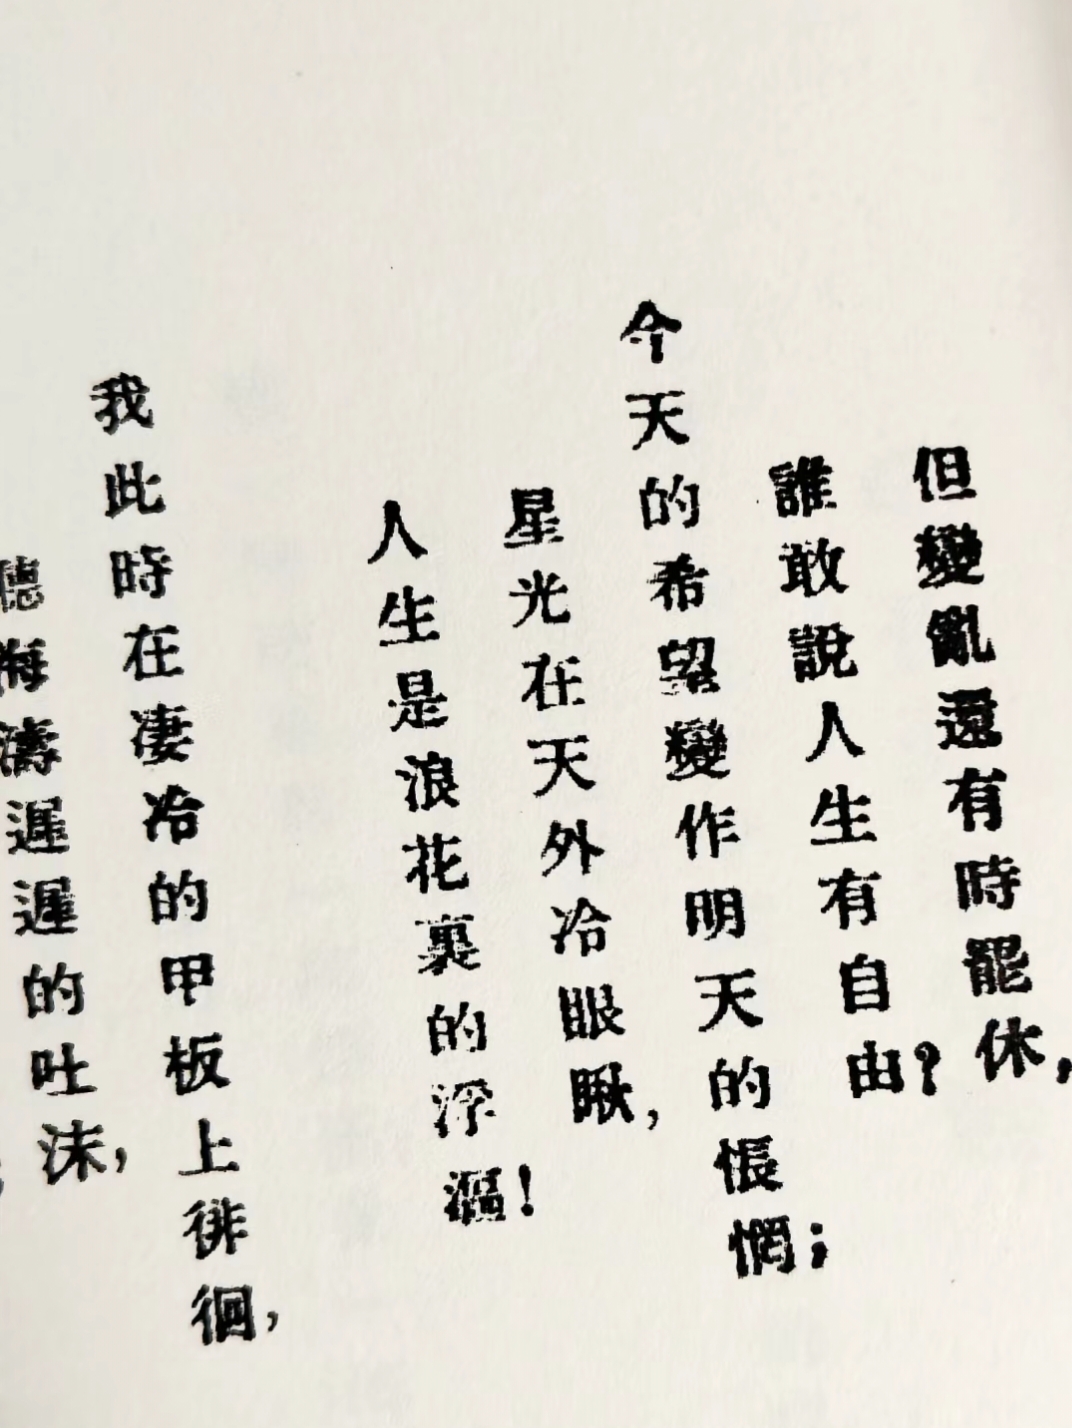 但變亂還有時罷休，
誰敢說人生有自由？
今天的希望變作明天的悵惘；
星光在天外冷眼瞅，
人生是浪花裏的浮漚！
我此時在凄冷的甲板上徘徊，
聽海濤遲遲的吐沫，